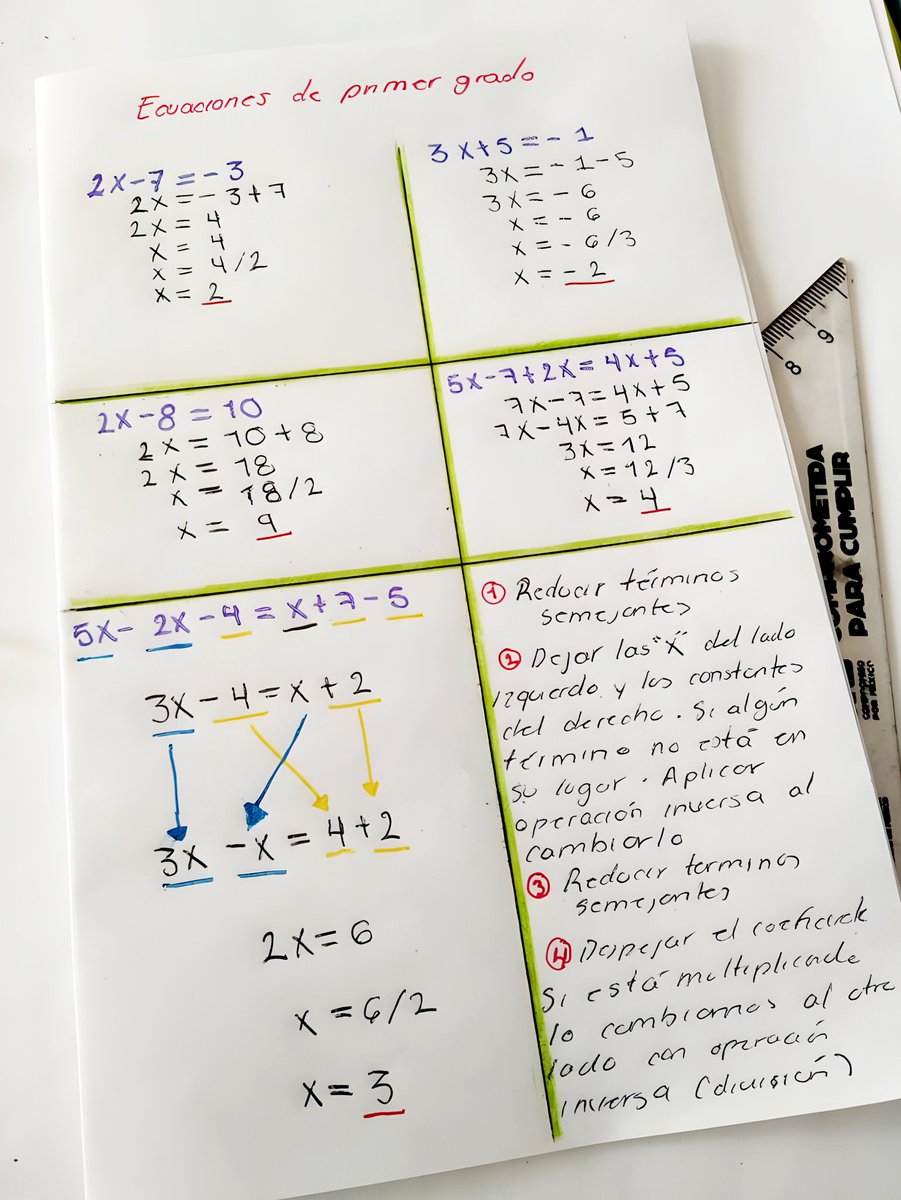 Ecuaciones de primer grado
2x-7=-3
2x=-3+7
2x=4
x=4
x=4/2
x=2
3x+5=-1
3x=-1-5
3x=-6
x=-6
x=-6/3
x=-2
2x-8=10
2x=10+8
2x=18
x=18/2
x=9
5x-7+2x=4x+5
7x-7=4x+5
7x-4x=5+7
3x=12
x=12/3
x=4
5x-2x-4=x+7-5
3x-4=x+2
3x-x=4+2
2x=6
x=6/2
x=3
1 Reducir términos
semejantes
2 Dejar las "x" del lado
izquierdo y las constantes
del derecho. Si algún
término no está en
su lugar. Aplicar
operación inversa al
cambiarlo
3 Reducir terminos
semejantes
4 Despejar el coeficiente
Si está multiplicando
lo cambiamos al otro
lado con operación
inversa (división)
8 9
COMPROMETIDA
PARA CUMPLIR
COMPROMISO
POR MÉXICO